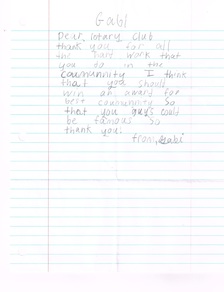 Gabi
Dear, rotary Club
thank you for all
the hard work that
you to in the
community I think
that you should
win an award for
best community so
that you guys could
be famous so
thank you!
from, Gabi